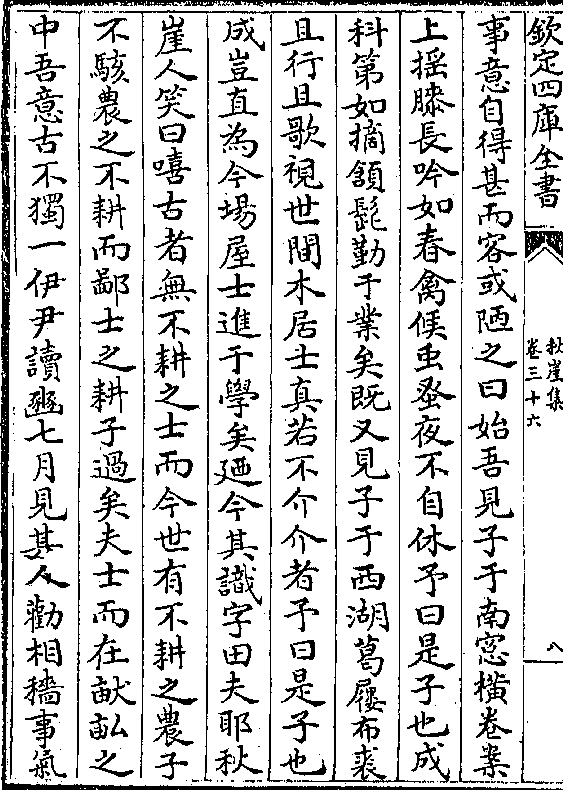 欽定四庫全書
秋崖集
卷三十六
八
事意自得甚而客或陋之曰始吾見子于南窓橫卷案
上揺膝長吟如春禽候虫發夜不自休予曰是子也成
科第如摘頷髭勤于業矣既又見子于西湖葛屨布裘
且行且歌視世間木居士真若不介介者予曰是子也
成豈直為今場屋士進于學矣廼今其識字田夫耶秋
崖人笑曰嘻古者無不耕之士而今世有不耕之農子
不駭農之不耕而鄙士之耕子過矣夫士而在畎畆之
中吾意古不獨一伊尹讀豳七月見其人勸相穡事氣